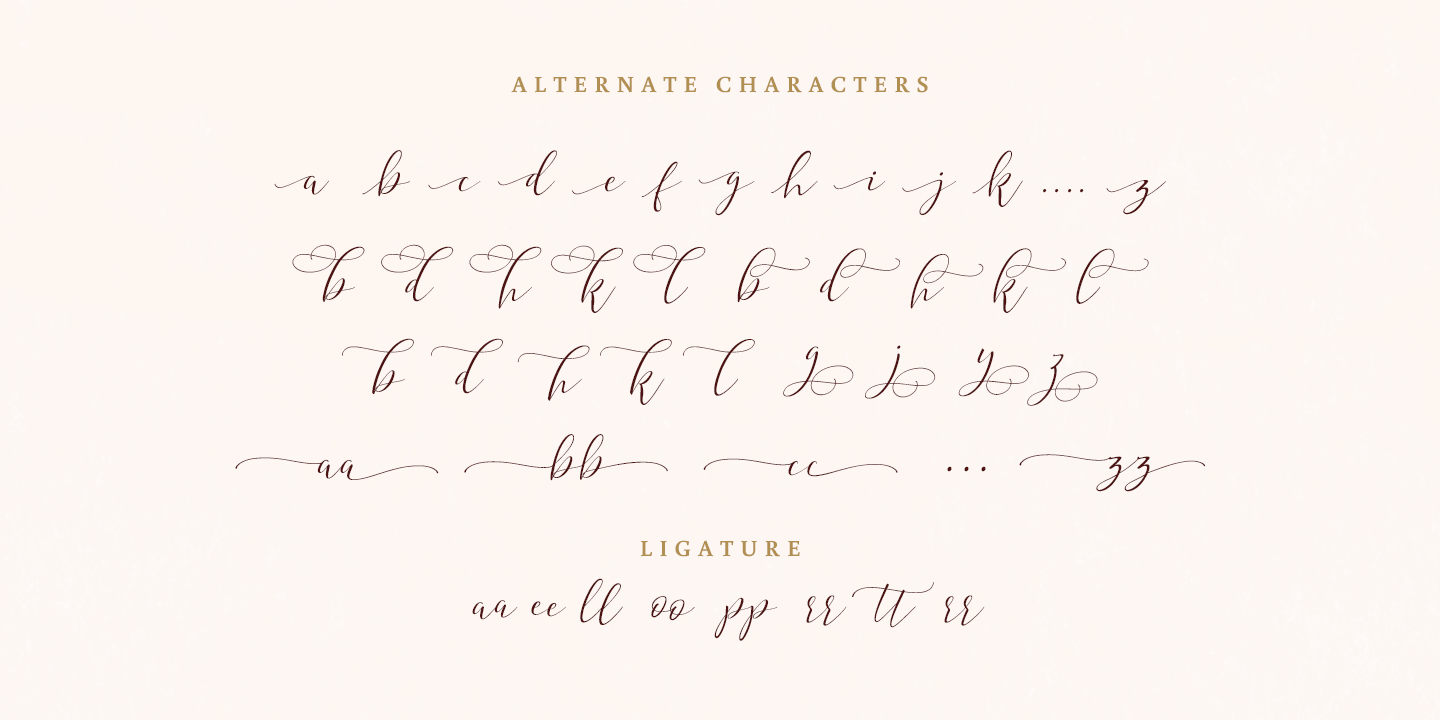 ALTERNATE CHARACTERS
a b c d e f g h i j k .... z
b d h k l b d h k l
b d h k l g j y z
aa bb cc ... zz
LIGATURE
aa ee ll oo pp rr tt rr